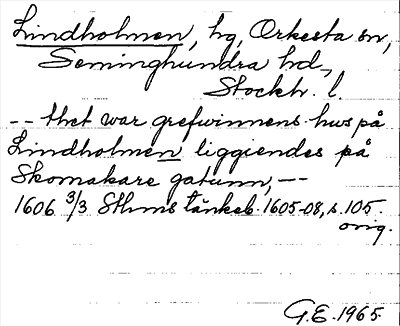 Lindholmen, hg, Orkesta sn,
Seminghundra hd.,
Stockh. l.
-- thet war grefwinnens hus på
Lindholmen liggiendes på
Skomakare gatunn, --
1606 3/3 Sthms tänkeb. 1605-08, s. 105.
orig.
G.E. 1965.